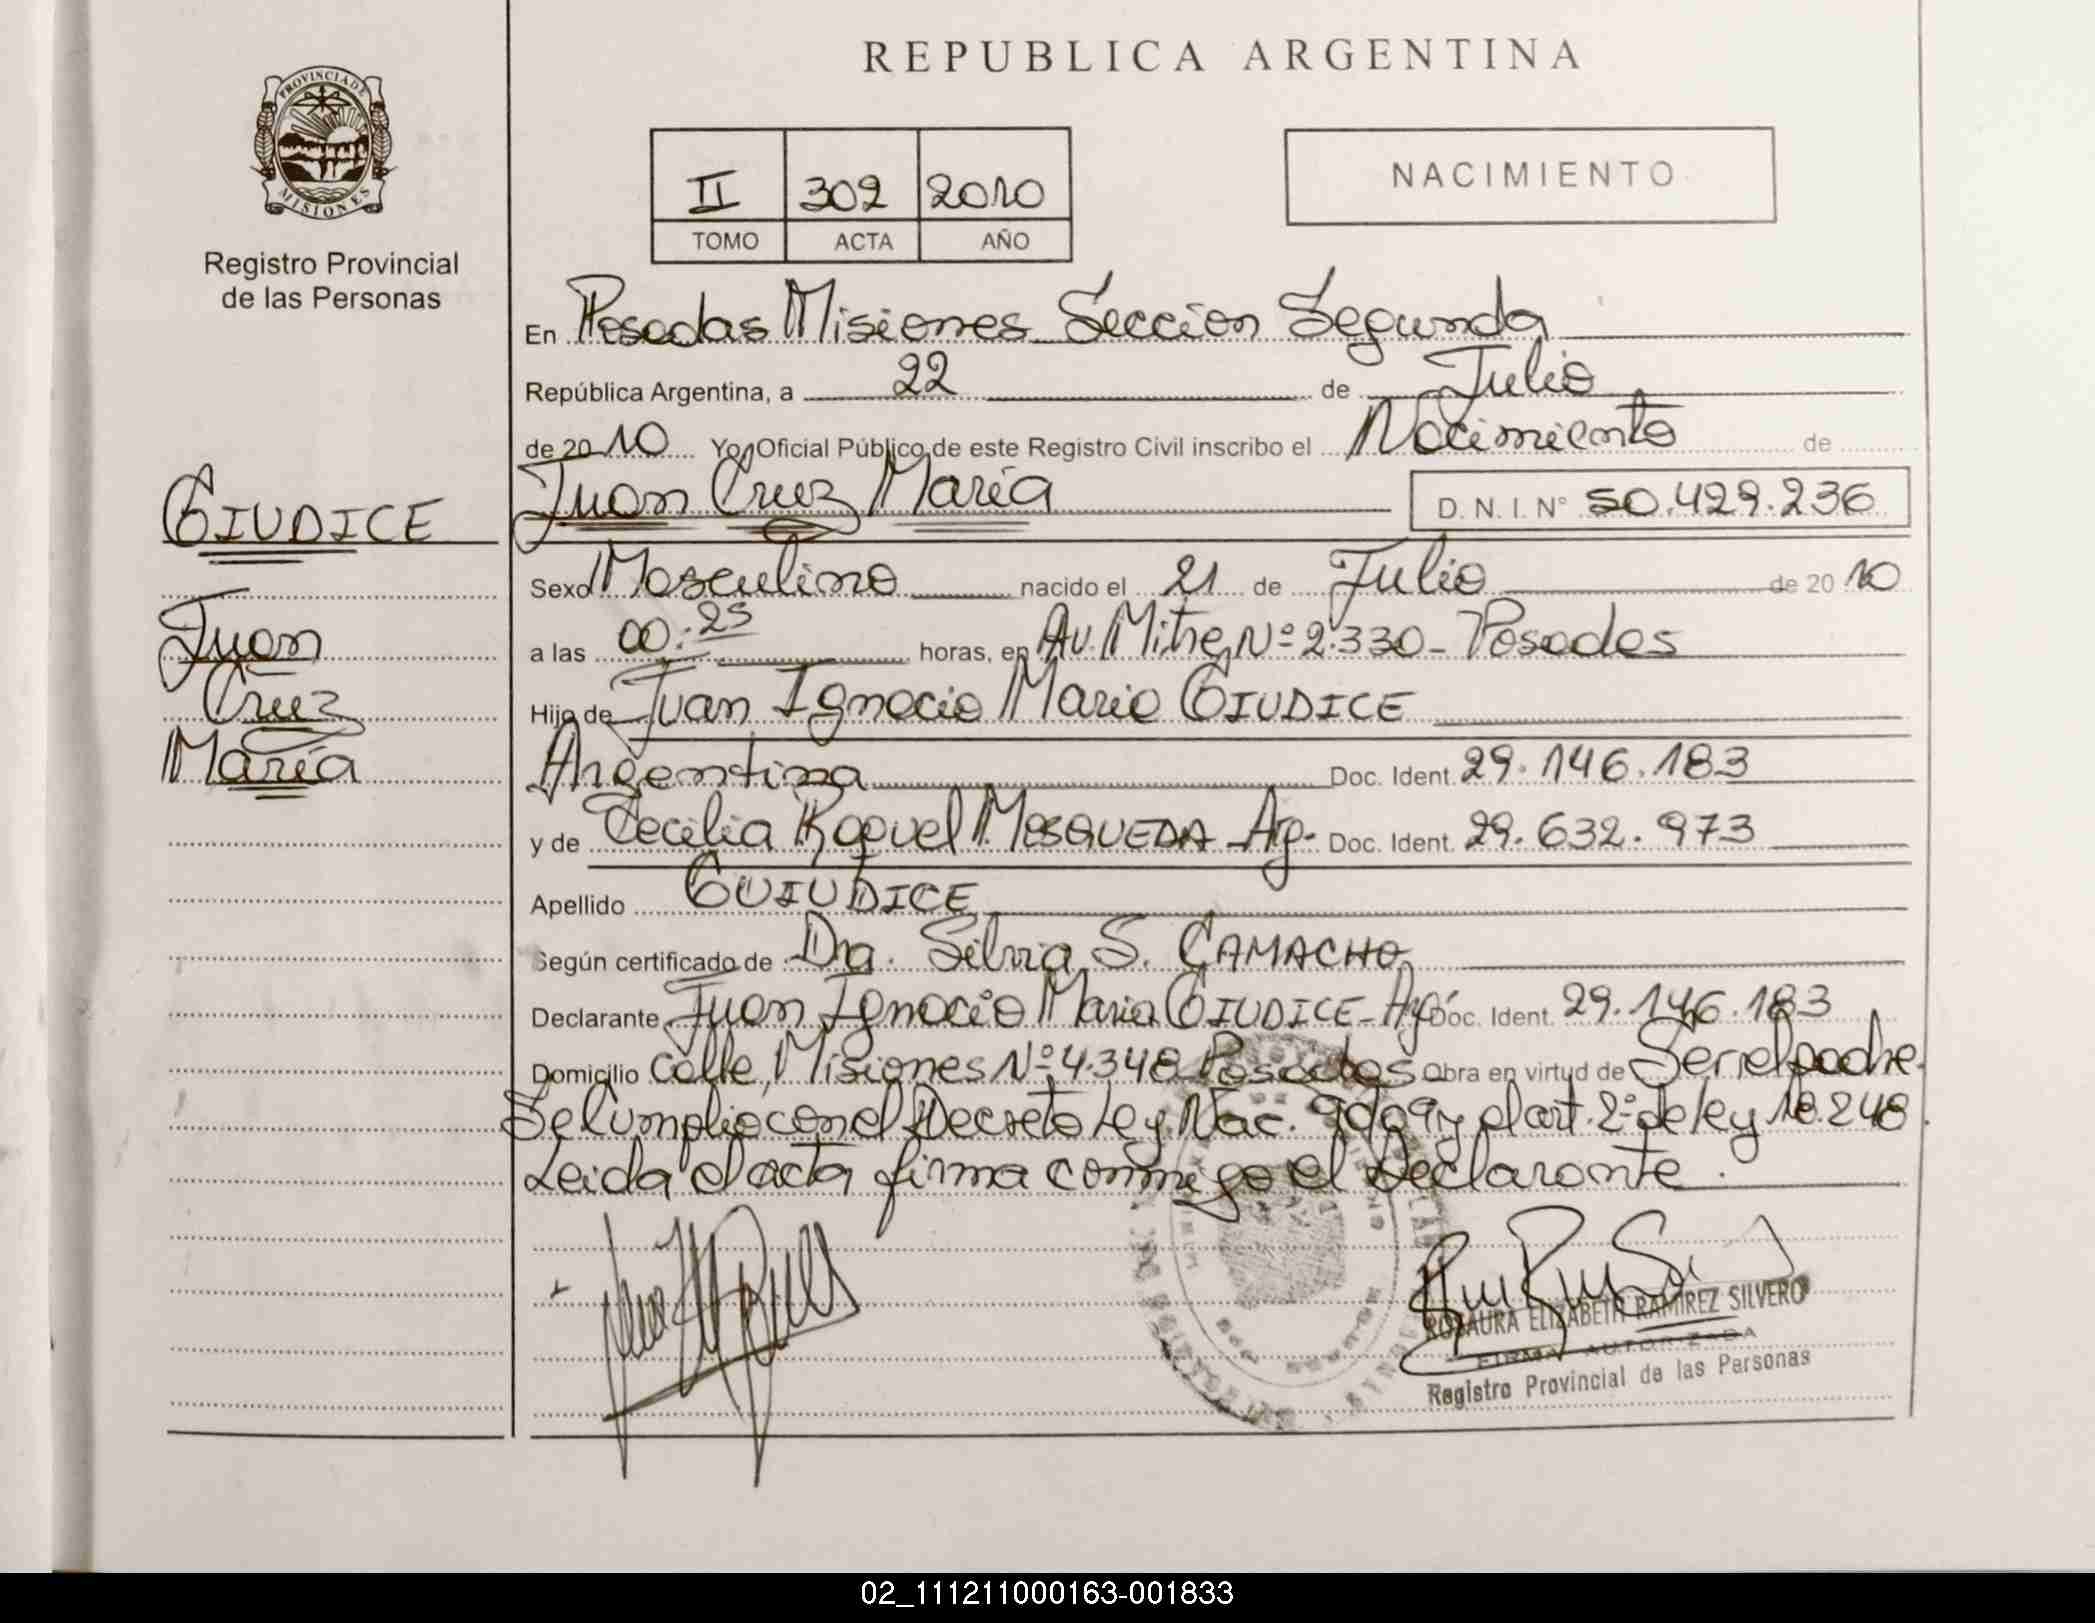 REPUBLICA ARGENTINA
PROVINCIA DE
MISIONES
Registro Provincial
de las Personas
II 302 2010
TOMO ACTA AÑO
NACIMIENTO
En Posadas Misiones Seccion Segunda
República Argentina, a 22 de Julio
de 2010 Yo, Oficial Público de este Registro Civil inscribo el Nacimiento de
GIUDICE
Juan Cruz María
D. N. I. N° 50.429.236
Sexo Masculino nacido el 21 de Julio de 2010
Juan
Cruz
María
a las 00:25 horas, en Av. Mitre Nº 2.330 - Posadas
Hijo de Juan Ignacio Mario GIUDICE
Argentina Doc. Ident. 29.146.183
y de Cecilia Raquel MOSQUEDA Arg. Doc. Ident. 29.632.973
Apellido GUIUDICE
Según certificado de Dra. Silvia S. CAMACHO
Declarante Juan Ignacio Mario GIUDICE - Arg. Doc. Ident. 29.146.183
Domicilio Calle Misiones Nº 4.348 Posadas Obra en virtud de Ser el padre.
Se Cumplio con el Decreto Ley Nac. y el art. 2º de ley 18.248.
Leida el acta firma conmigo el declarante.
ROSAURA ELIZABETH RAMIREZ SILVERO
FIRMA AUTORIZADA
Registro Provincial de las Personas
02_111211000163-001833